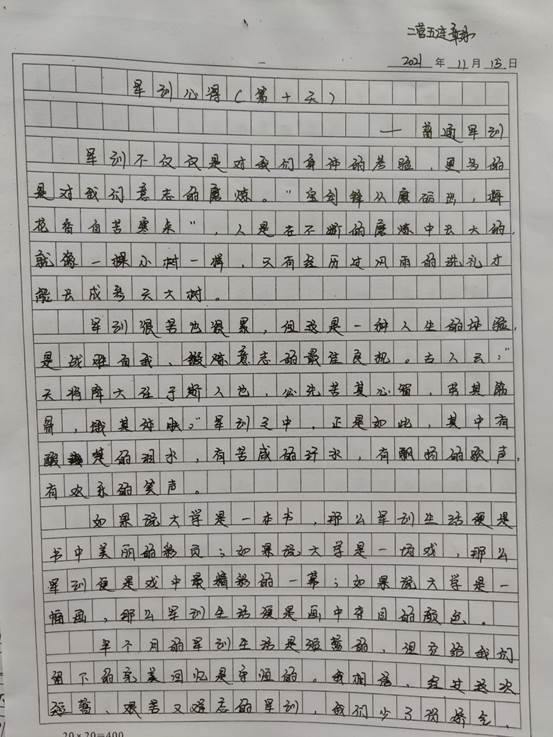 二营五连
2021年11月15日
军训心得(第十天)
——普通军训
军训不仅仅是对我们身体的考验,更多的
是对我们意志的磨炼。"宝剑锋从磨砺出,梅
花香自苦寒来",人是在不断的磨炼中长大的,
就像一棵小树一样,只有经历过风雨的洗礼才
能长成参天大树。
军训很苦也很累,但这是一种人生的体验,
是战胜自我、锻炼意志的最佳良机。古人云:"
天将降大任于斯人也,必先苦其心智,劳其筋
骨,饿其体肤。"军训之中,正是如此,其中有
酸楚的泪水,有苦咸的汗水,有飘扬的歌声,
有欢乐的笑声。
如果说大学是一本书,那么军训生活便是
书中美丽的彩页;如果说大学是一场戏,那么
军训便是戏中最精彩的一幕;如果说大学是一
幅画,那么军训生活便是画中夺目的颜色。
半个月的军训生活是短暂的,但它给我们
留下的完美回忆是永恒的。我相信,经过这次
短暂、艰苦又难忘的军训,我们少了份娇气,
20×20=400